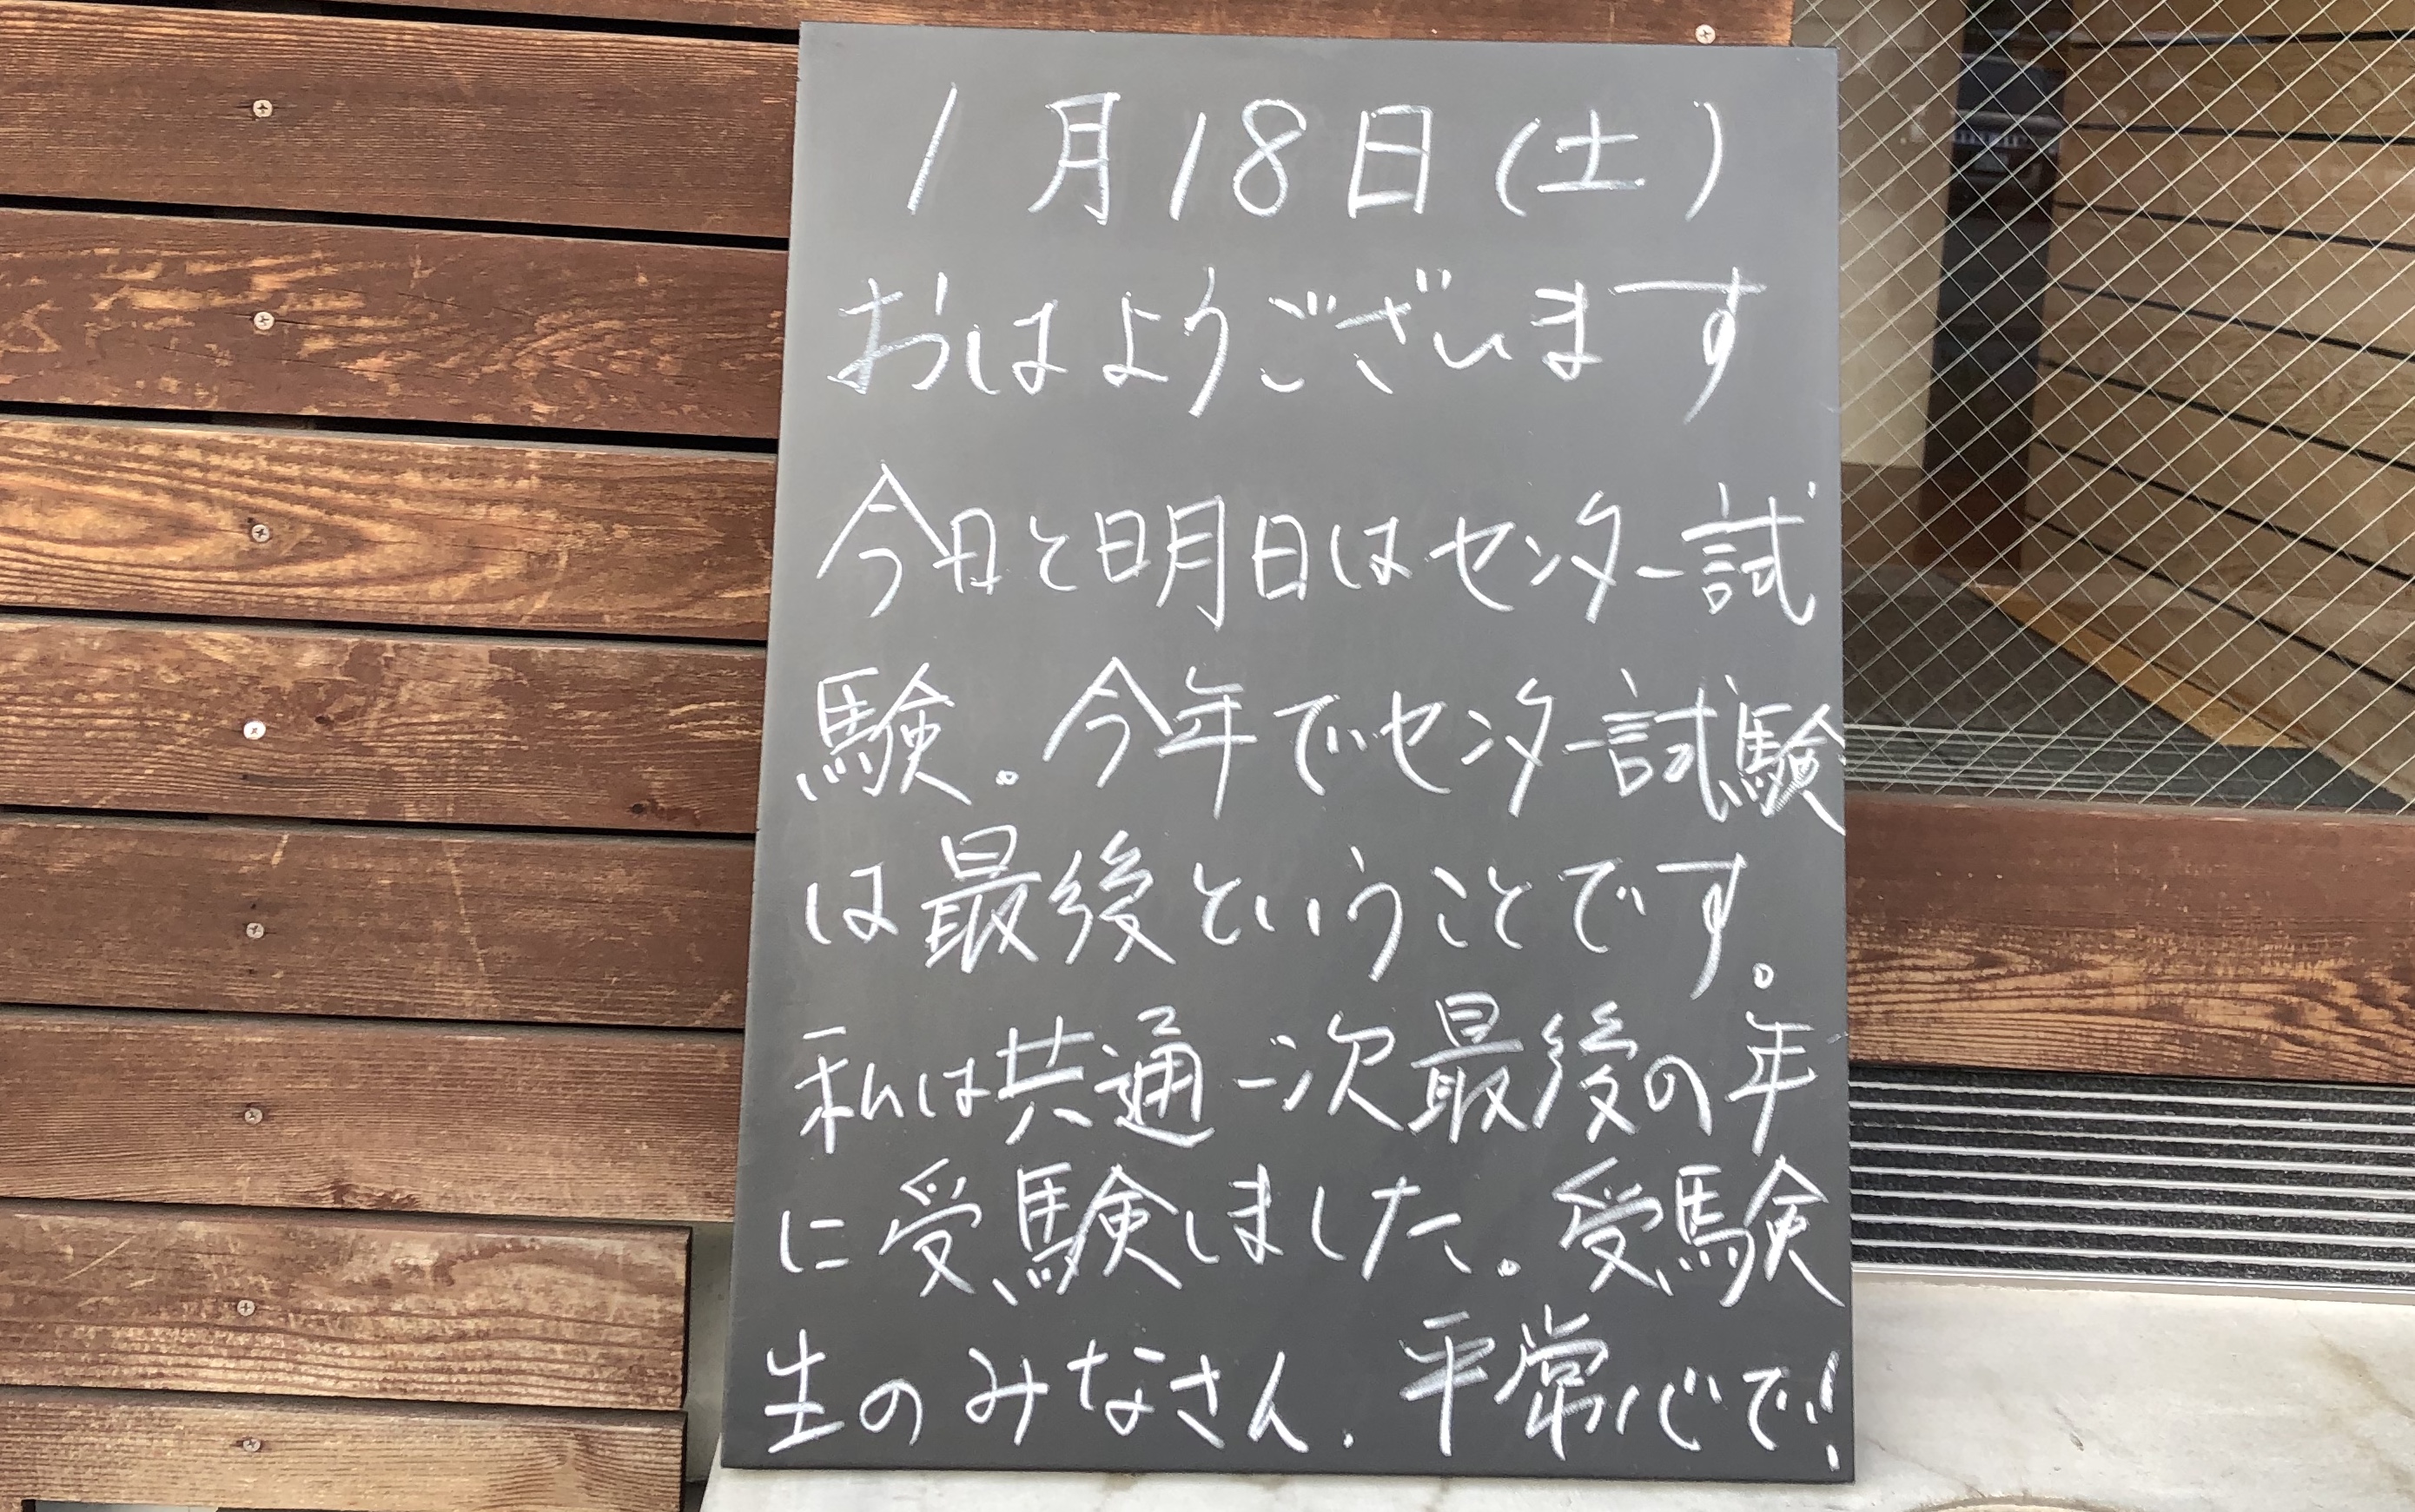 1月18日(土)
おはようございます
今日と明日はセンター試
験。今年でセンター試験
は最後ということです。
私は共通一次最後の年
に受験しました。受験
生のみなさん、平常心で!